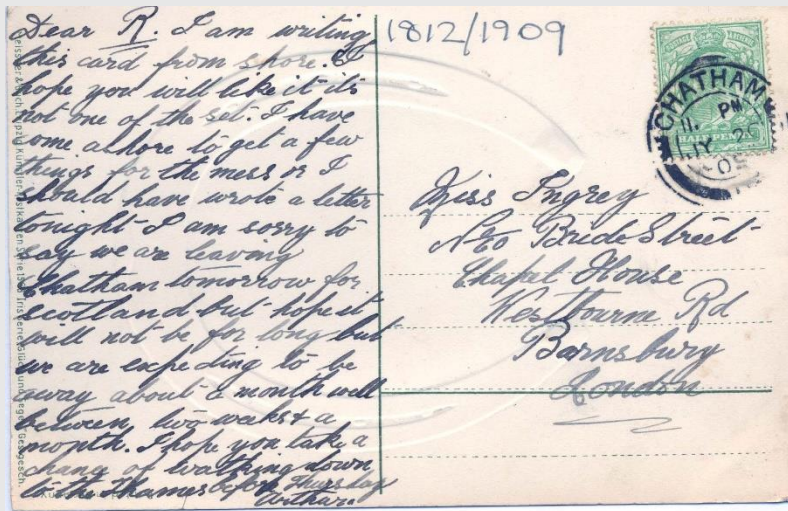 Dear R. I am writing
this card from shore. & I
hope you will like it its
not one of the set. I have
come ashore to get a few
things for the mess or I
should have wrote a letter
tonight I am sorry to
say we are leaving
Chatham tomorrow for
Scotland but hope it
will not be for long but
we are expecting to be
away about a month well
between two weeks & a
month. I hope you take a
chang of walking down
to the Thames before Thursday
Arthur.
1812/1909
CHATHAM
11. PM
JY 2
09
HALF PENNY
Miss Ingrey
No Bride Street
Chapel House
Westbourne Rd
Barnsbury
London